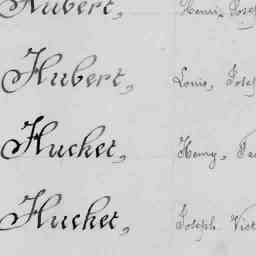 Hubert, Henri, Josep
Hubert, Louis, Josep
Huchet, Henry,
Huchet, Joseph Vict